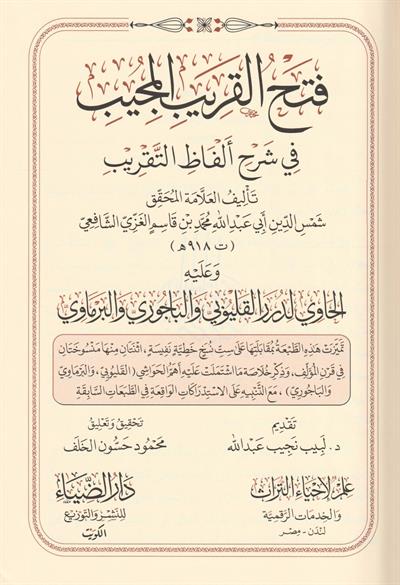 فَتْحُ القَرِيبِ المُجِيبِ
فِي شَرْحِ أَلْفَاظِ التَّقْرِيبِ
تَأْلِيفُ العَلَّامَةِ المُحَقِّقِ
شَمْسِ الدِّينِ أَبِي عَبْدِ اللهِ مُحَمَّدِ بْنِ قَاسِمٍ الغَزِّيِّ الشَّافِعِيِّ
(ت ٩١٨هـ)
وَعَلَيْهِ
الحَاوِي لِدُرَرِ القَلْيُوبِيِّ وَالبَاجُورِيِّ وَالبَرْمَاوِيِّ
تَمَيَّزَتْ هَذِهِ الطَّبْعَةُ بِمُقَابَلَتِهَا عَلَى سِتِّ نُسَخٍ خَطِّيَّةٍ نَفِيسَةٍ، اثْنَتَانِ مِنْهَا مَنْسُوخَتَانِ
فِي قَرْنِ المُؤَلِّفِ، وَذِكْرِ خُلَاصَةِ مَا اشْتَمَلَتْ عَلَيْهِ أَهَمُّ الحَوَاشِي (القَلْيُوبِي، وَالبَرْمَاوِي
وَالبَاجُورِي)، مَعَ التَّنْبِيهِ عَلَى الِاسْتِدْرَاكَاتِ الوَاقِعَةِ فِي الطَّبَعَاتِ السَّابِقَةِ
تَقْدِيم
د. لَبِيب نَجِيب عَبْدالله
تَحْقِيق وَتَعْلِيق
مَحْمُود حَسُّون الخَلَف
عِلْم لِإِحْيَاءِ التُّرَاث
وَالخِدْمَاتِ الرَّقْمِيَّة
لندن - مصر
دَارُ الضِّيَاءِ
لِلنَّشْرِ وَالتَّوْزِيعِ
الكويت